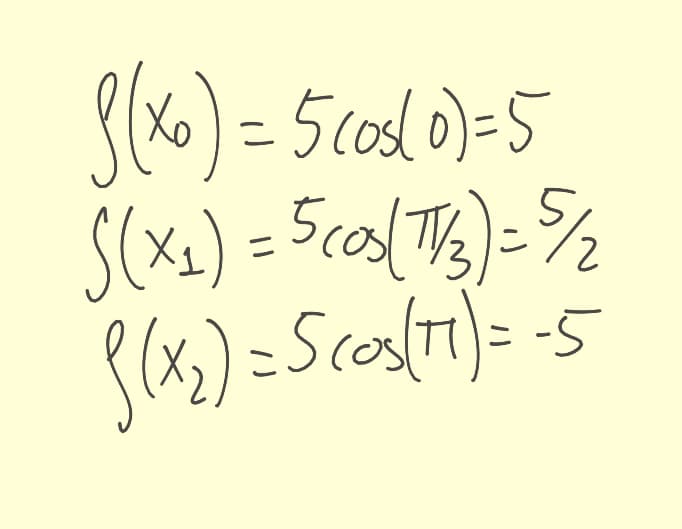 f(x₀) = 5cos(0)=5
f(x₁) = 5cos(π/3)= 5/2
f(x₂) = 5cos(π)= -5